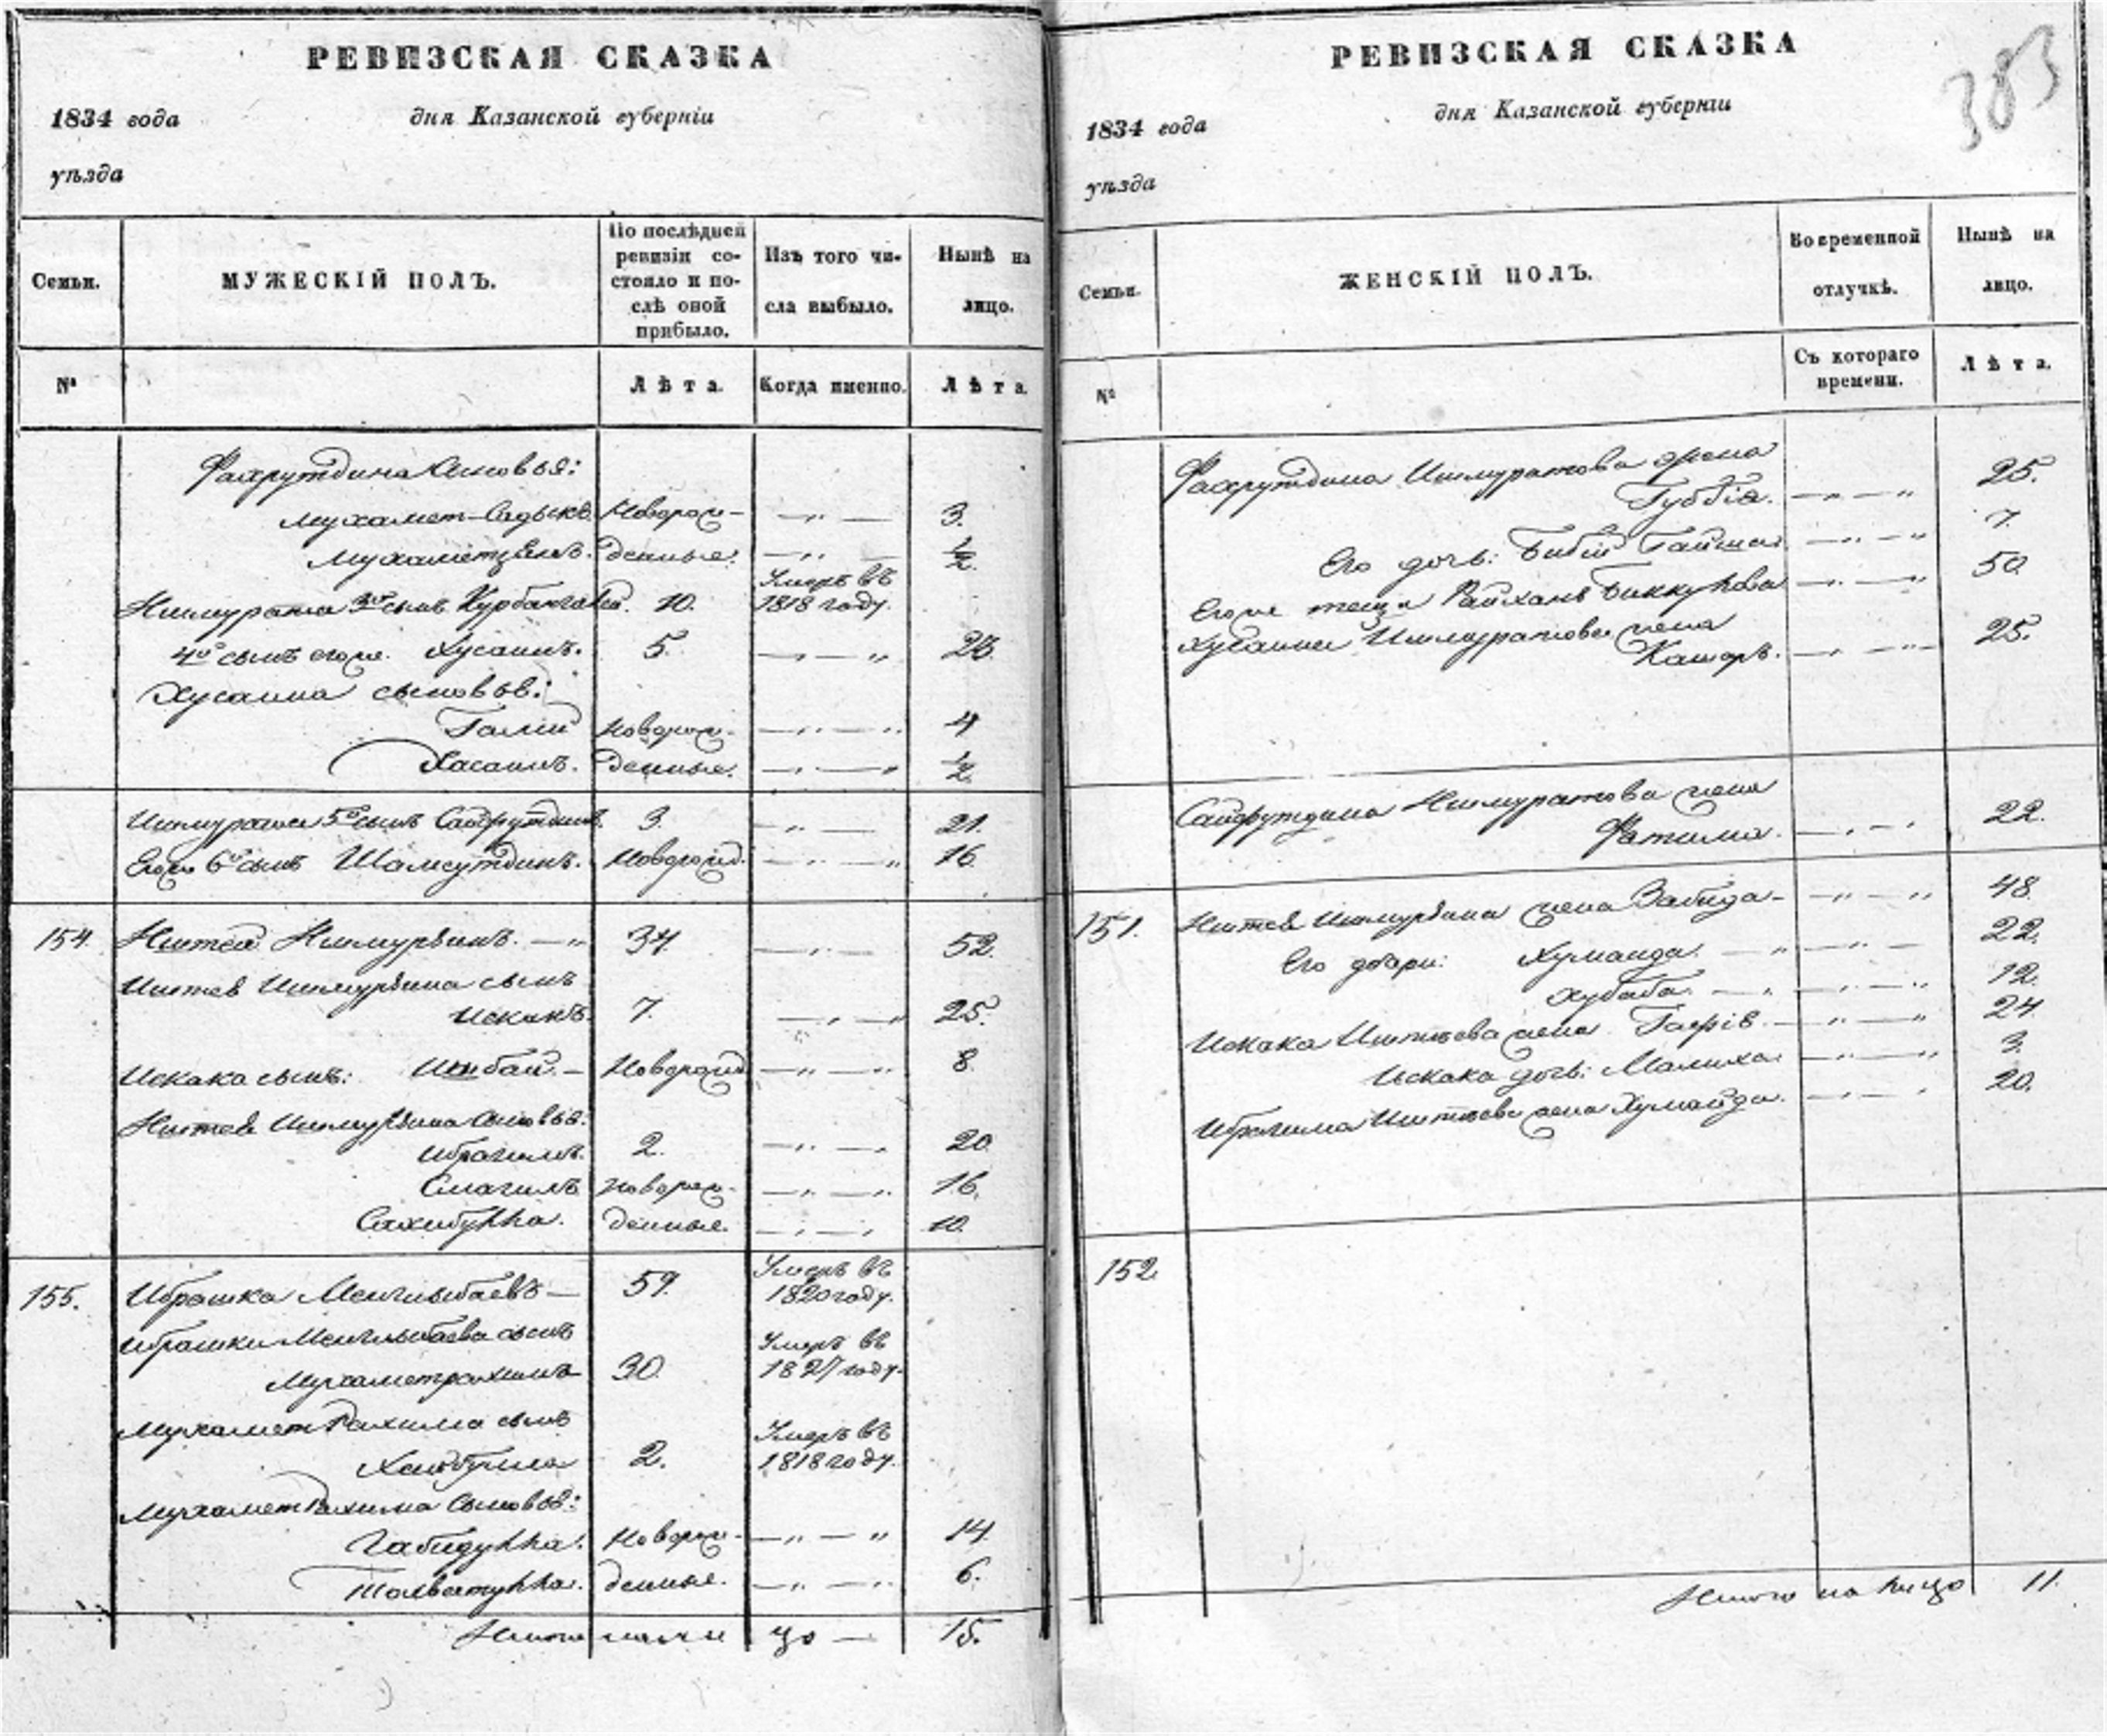 РЕВИЗСКАЯ СКАЗКА
1834 года дня Казанской губерніи
уѣзда
Семьи.
МУЖЕСКІЙ ПОЛЪ.
По послѣдней ревизіи состояло и послѣ оной прибыло.
Изъ того числа выбыло.
Нынѣ на лицо.
№
Лѣта.
Когда именно.
Лѣта.
Фахрутдина сыновья:
Мухамет-Садыкъ Новорож- 3.
Мухаметзянъ. денные. ½
Ишмурата 3й сынъ Курбангалей. 10. Умеръ въ 1818 году.
4й сынъ егоже Хусаинъ. 5. 23
Хусаина сыновья:
Галий Новорож- 4
Хасанъ. денные. ½
Ишмурата 5й сынъ Сайфутдинъ. 3. 21.
Егоже 6й сынъ Шамсутдинъ. Новорожд. 16
154. Иштей Ишмурзинъ. 34. 52.
Иштея Ишмурзина сынъ
Искакъ. 7. 25.
Искака сынъ: Ишбай. Новорожд. 8
Иштея Ишмурзина сыновья:
Ибрагимъ. 2. 20
Смагилъ Новорож- 16.
Сахибулла. денные. 10.
155. Ибрашка Менглыбаевъ 59. Умеръ въ 1820 году.
Ибрашки Менглыбаева сынъ
Мухаметрахимъ 30. Умеръ въ 1827 году.
Мухамет Рахима сынъ
2. Умеръ въ 1818 году.
Мухамет Рахима сыновья:
Габидулла. Новорож- 14.
денные. 6.
Итого на ли цо 15.
383
РЕВИЗСКАЯ СКАЗКА
1834 года дня Казанской губерніи
уѣзда
Семьи.
ЖЕНСКІЙ ПОЛЪ.
Во временной отлучкѣ.
Нынѣ на лицо.
№
Съ котораго времени.
Лѣта.
Фахрутдина Ишмуратова жена
25.
Его дочь: Бибій Гайша. 7.
Егоже теща Райхана Биккулова 50.
Хусаина Ишмуратова жена
25.
Сайфутдина Ишмуратова жена
Фатима. 22.
151. Иштея Ишмурзина жена Забида 48.
Его дочери: Хумаида 22.
Хубаба. 12.
Искака Иштеева жена 24
Искака дочь: Малиха. 3.
Ибрагима Иштеева жена Хумайда. 20.
152.
Итого на лицо 11.